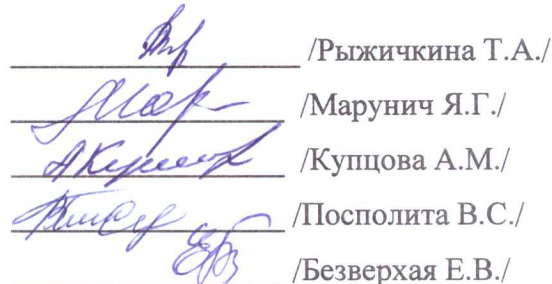 /Рыжичкина Т.А./
/Марунич Я.Г./
/Купцова А.М./
/Посполита В.С./
/Безверхая Е.В./